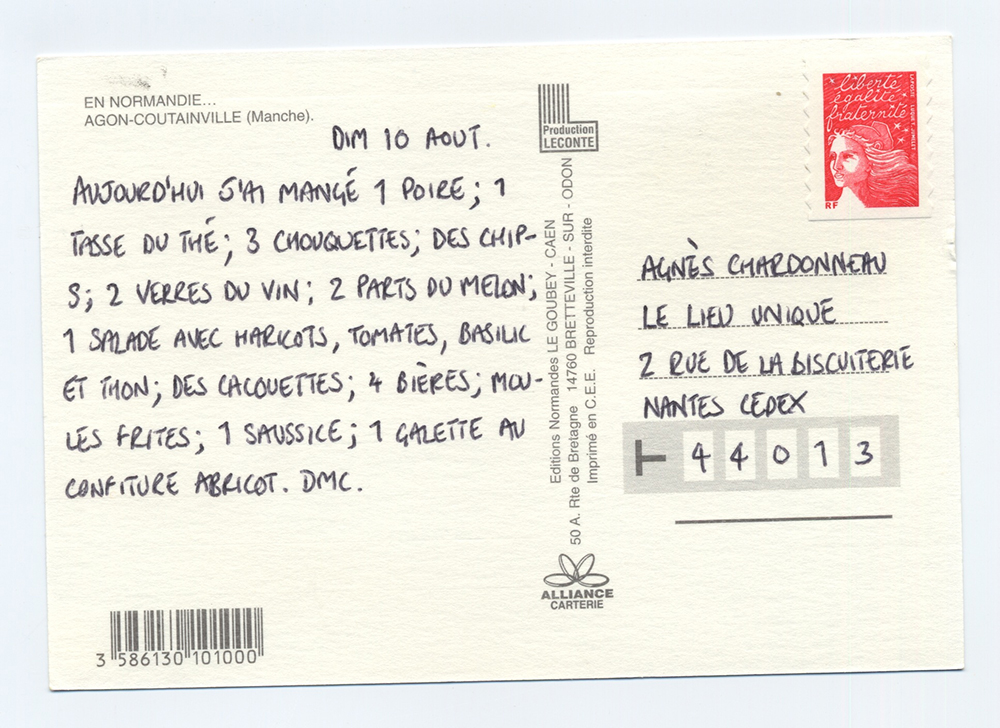 EN NORMANDIE...
AGON-COUTAINVILLE (Manche).
DIM 10 AOUT.
AUJOURD'HUI J'AI MANGÉ 1 POIRE; 1
TASSE DU THÉ; 3 CHOUQUETTES; DES CHIP-
S; 2 VERRES DU VIN; 2 PARTS DU MELON;
1 SALADE AVEC HARICOTS, TOMATES, BASILIC
ET THON; DES CACOUETTES; 4 BIÈRES; MOU-
LES FRITES; 1 SAUSSICE; 1 GALETTE AU
CONFITURE ABRICOT. DMC.
3 586130 101000
Production
LECONTE
Editions Normandes LE GOUBEY - CAEN
50 A. Rte de Bretagne 14760 BRETTEVILLE - SUR - ODON
Imprimé en C.E.E. Reproduction interdite
ALLIANCE
CARTERIE
liberté
égalité
fraternité
RF
AGNÈS CHARDONNEAU
LE LIEU UNIQUE
2 RUE DE LA BISCUITERIE
NANTES CEDEX
44013